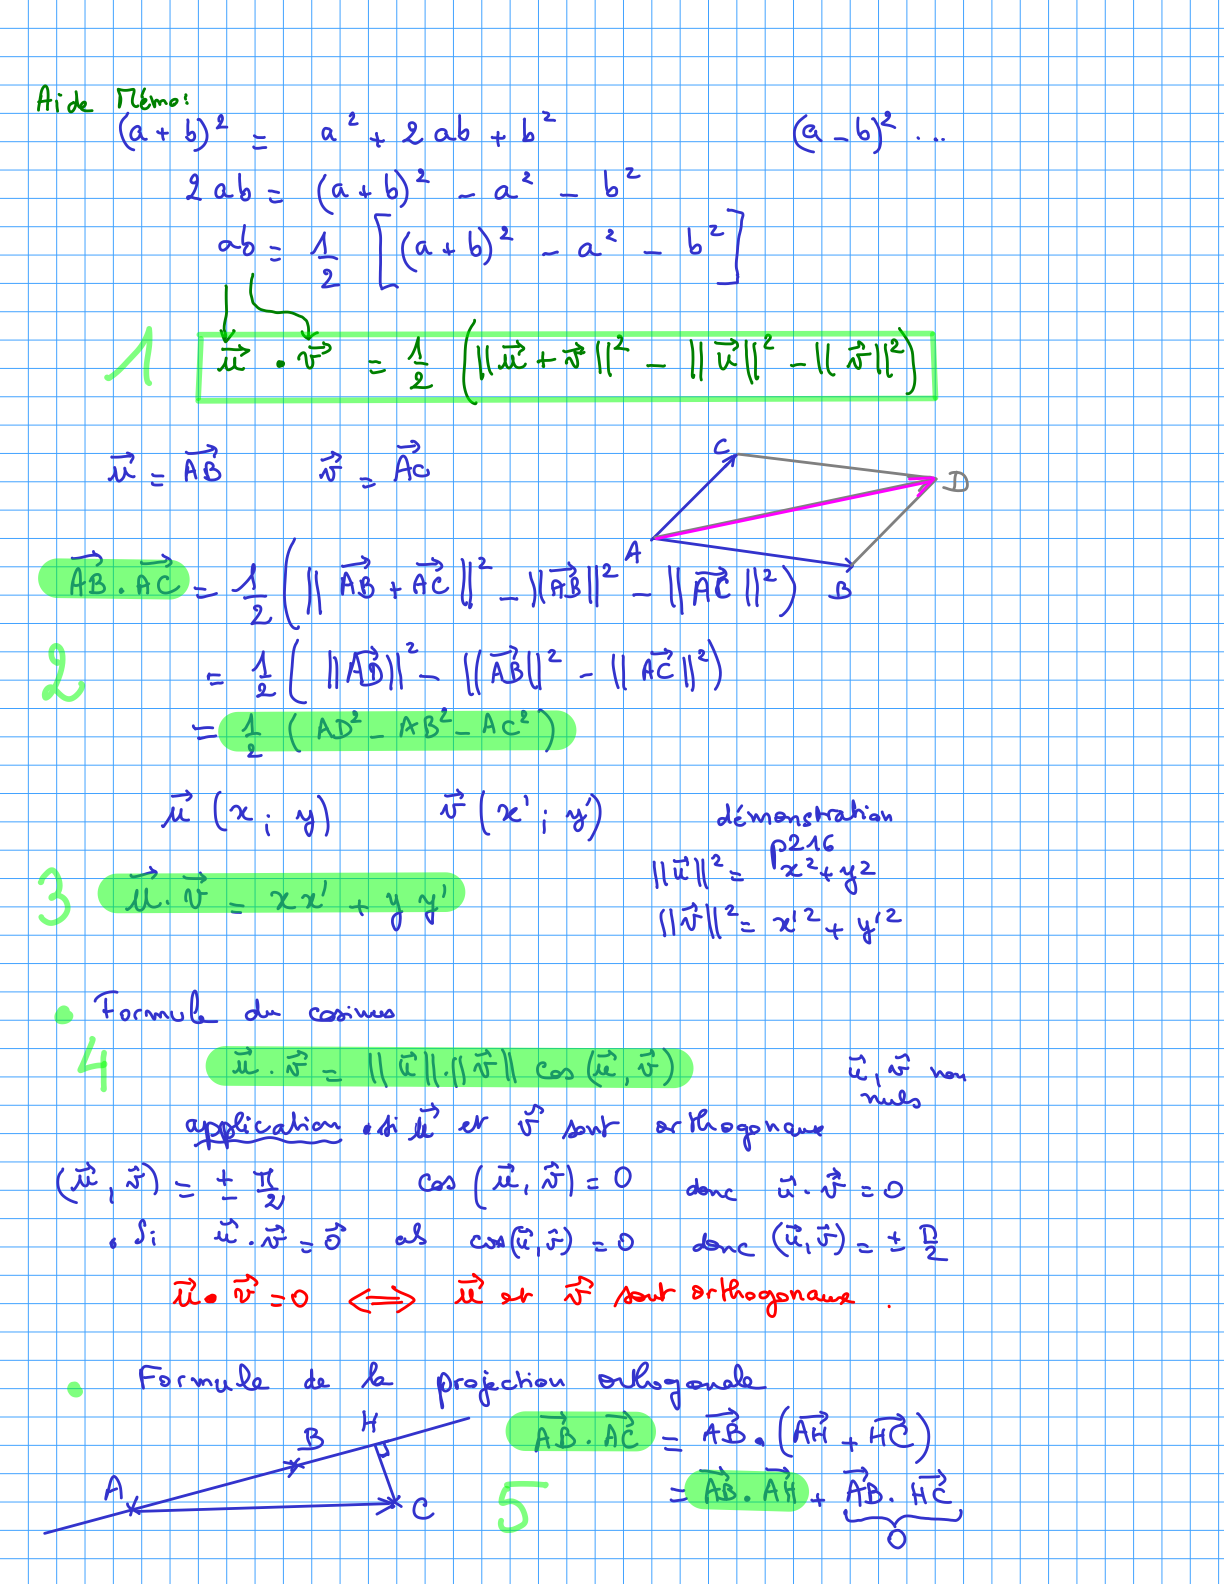 Aide Mémo:
(a + b)² = a² + 2 ab + b² (a - b)² ...
2 ab = (a + b)² - a² - b²
ab = 1/2 [(a + b)² - a² - b²]
1 u⃗ · v⃗ = 1/2 (||u⃗ + v⃗||² - ||u⃗||² - ||v⃗||²)
u⃗ = AB⃗ v⃗ = AC⃗
C D A B
AB⃗ . AC⃗ = 1/2 (||AB⃗ + AC⃗||² - ||AB⃗||² - ||AC⃗||²)
2 = 1/2 (||AD⃗||² - ||AB⃗||² - ||AC⃗||²)
= 1/2 (AD² - AB² - AC²)
u⃗ (x ; y) v⃗ (x' ; y') démonstration
p216
||u⃗||² = x² + y²
3 u⃗ . v⃗ = x x' + y y'
||v⃗||² = x'² + y'²
• Formule du cosinus
4 u⃗ . v⃗ = ||u⃗||.||v⃗|| cos (u⃗, v⃗) u⃗, v⃗ non
nuls
application • si u⃗ et v⃗ sont orthogonaux
(u⃗, v⃗) = ± π/2 cos (u⃗, v⃗) = 0 donc u⃗ . v⃗ = 0
. Si u⃗ . v⃗ = 0⃗ als cos(u⃗, v⃗) = 0 donc (u⃗, v⃗) = ± π/2
u⃗ • v⃗ = 0 ⟺ u⃗ et v⃗ sont orthogonaux .
• Formule de la projection orthogonale
A B H C
5 AB⃗ . AC⃗ = AB⃗ . (AH⃗ + HC⃗)
= AB⃗ . AH⃗ + AB⃗ . HC⃗
0